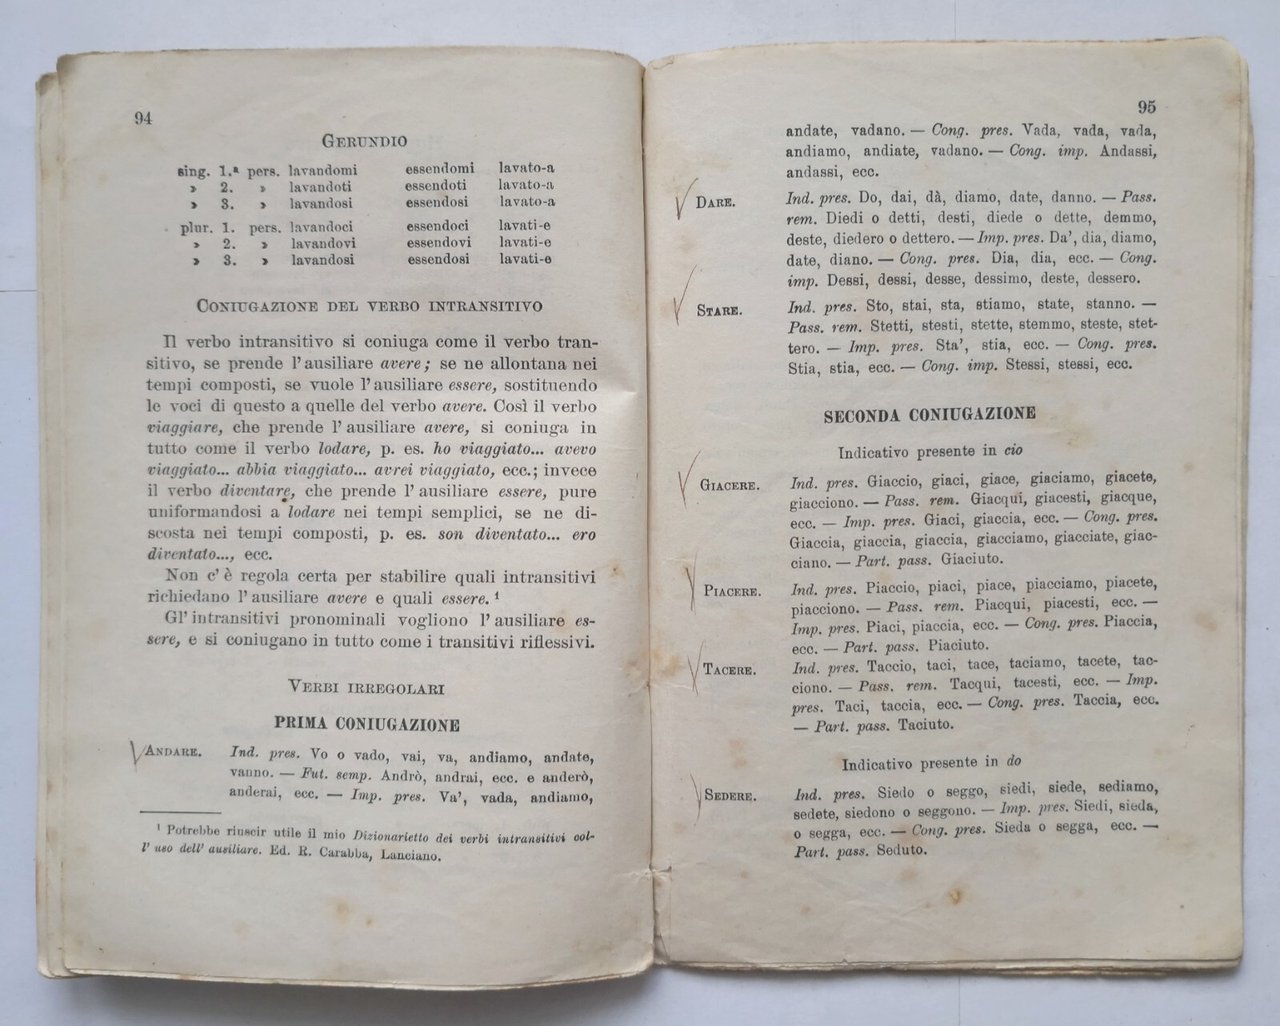 94
GERUNDIO
sing. 1.ª pers. lavandomi essendomi lavato-a
» 2. » lavandoti essendoti lavato-a
» 3. » lavandosi essendosi lavato-a
plur. 1. pers. lavandoci essendoci lavati-e
» 2. » lavandovi essendovi lavati-e
» 3. » lavandosi essendosi lavati-e
CONIUGAZIONE DEL VERBO INTRANSITIVO
Il verbo intransitivo si coniuga come il verbo tran-
sitivo, se prende l'ausiliare avere; se ne allontana nei
tempi composti, se vuole l'ausiliare essere, sostituendo
le voci di questo a quelle del verbo avere. Così il verbo
viaggiare, che prende l'ausiliare avere, si coniuga in
tutto come il verbo lodare, p. es. ho viaggiato... avevo
viaggiato... abbia viaggiato... avrei viaggiato, ecc.; invece
il verbo diventare, che prende l'ausiliare essere, pure
uniformandosi a lodare nei tempi semplici, se ne di-
scosta nei tempi composti, p. es. son diventato... ero
diventato..., ecc.
Non c'è regola certa per stabilire quali intransitivi
richiedano l'ausiliare avere e quali essere. ¹
Gl'intransitivi pronominali vogliono l'ausiliare es-
sere, e si coniugano in tutto come i transitivi riflessivi.
VERBI IRREGOLARI
PRIMA CONIUGAZIONE
ANDARE. Ind. pres. Vo o vado, vai, va, andiamo, andate,
vanno. — Fut. semp. Andrò, andrai, ecc. e anderò,
anderai, ecc. — Imp. pres. Va', vada, andiamo,
¹ Potrebbe riuscir utile il mio Dizionarietto dei verbi intransitivi col-
l'uso dell'ausiliare. Ed. R. Carabba, Lanciano.
95
andate, vadano. — Cong. pres. Vada, vada, vada,
andiamo, andiate, vadano. — Cong. imp. Andassi,
andassi, ecc.
DARE. Ind. pres. Do, dai, dà, diamo, date, danno. — Pass.
rem. Diedi o detti, desti, diede o dette, demmo,
deste, diedero o dettero. — Imp. pres. Da', dia, diamo,
date, diano. — Cong. pres. Dia, dia, ecc. — Cong.
imp. Dessi, dessi, desse, dessimo, deste, dessero.
STARE. Ind. pres. Sto, stai, sta, stiamo, state, stanno. —
Pass. rem. Stetti, stesti, stette, stemmo, steste, stet-
tero. — Imp. pres. Sta', stia, ecc. — Cong. pres.
Stia, stia, ecc. — Cong. imp. Stessi, stessi, ecc.
SECONDA CONIUGAZIONE
Indicativo presente in cio
GIACERE. Ind. pres. Giaccio, giaci, giace, giaciamo, giacete,
giacciono. — Pass. rem. Giacqui, giacesti, giacque,
ecc. — Imp. pres. Giaci, giaccia, ecc. — Cong. pres.
Giaccia, giaccia, giaccia, giacciamo, giacciate, giac-
ciano. — Part. pass. Giaciuto.
PIACERE. Ind. pres. Piaccio, piaci, piace, piacciamo, piacete,
piacciono. — Pass. rem. Piacqui, piacesti, ecc. —
Imp. pres. Piaci, piaccia, ecc. — Cong. pres. Piaccia,
ecc. — Part. pass. Piaciuto.
TACERE. Ind. pres. Taccio, taci, tace, taciamo, tacete, tac-
ciono. — Pass. rem. Tacqui, tacesti, ecc. — Imp.
pres. Taci, taccia, ecc. — Cong. pres. Taccia, ecc.
— Part. pass. Taciuto.
Indicativo presente in do
SEDERE. Ind. pres. Siedo o seggo, siedi, siede, sediamo,
sedete, siedono o seggono. — Imp. pres. Siedi, sieda,
o segga, ecc. — Cong. pres. Sieda o segga, ecc. —
Part. pass. Seduto.